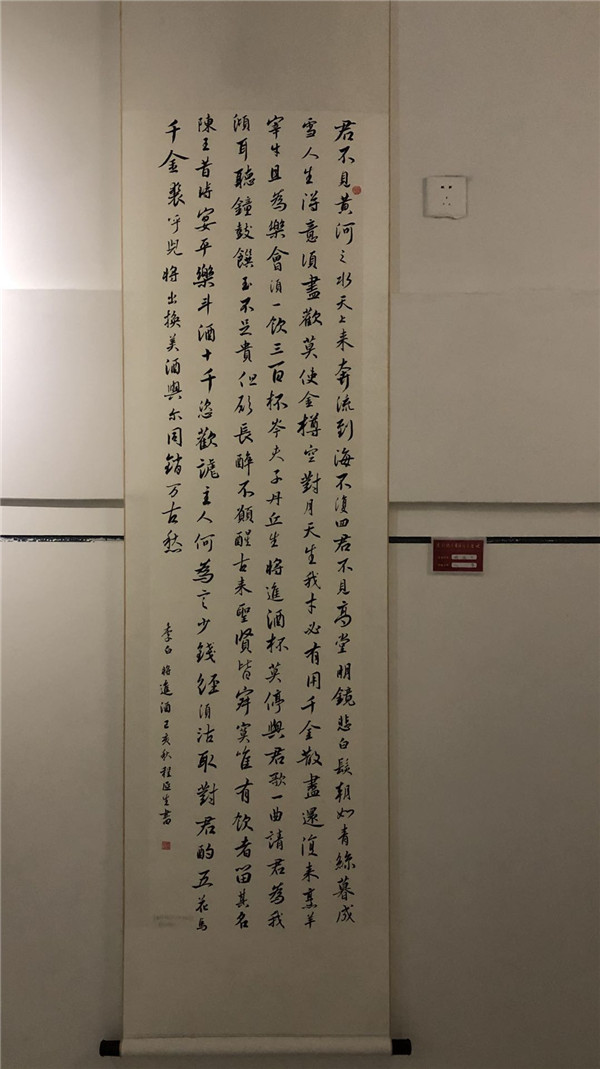 君不見黃河之水天上来奔流到海不復回君不見高堂明鏡悲白髮朝如青絲暮成
雪人生得意須盡歡莫使金樽空對月天生我才必有用千金散盡還復来烹羊
宰牛且為樂會須一飲三百杯岑夫子丹丘生將進酒杯莫停與君歌一曲請君為我
傾耳聽鐘鼓饌玉不足貴但願長醉不願醒古来聖賢皆寂寞唯有飲者留其名
陳王昔時宴平樂斗酒十千恣歡謔主人何為言少錢徑須沽取對君酌五花馬
千金裘呼兒將出換美酒與尔同銷万古愁
李白將進酒乙亥秋程臣生書